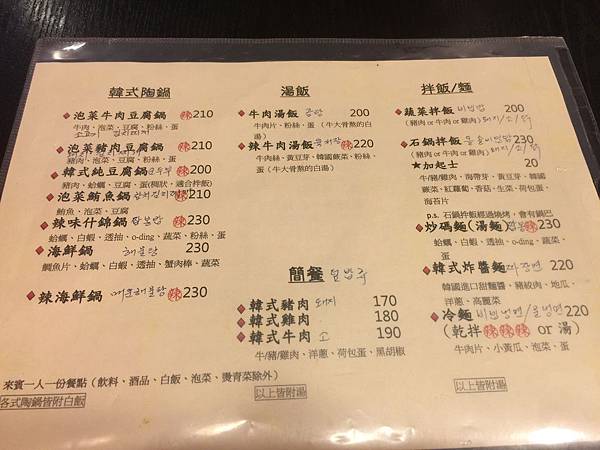 韓式陶鍋
泡菜牛肉豆腐鍋 辣210
牛肉、泡菜、豆腐、粉絲、蛋
泡菜豬肉豆腐鍋 辣210
韓式純豆腐鍋 순두부 辣200
豬肉、蛤蠣、豆腐、蛋(稠狀，適合拌飯)
泡菜鮪魚鍋 참치김치찌개 辣210
鮪魚、泡菜、豆腐
辣味什錦鍋 짬뽕탕 辣230
蛤蠣、白蝦、透抽、o-ding、蔬菜、粉絲、蛋
海鮮鍋 해물탕 230
鯛魚片、蛤蠣、白蝦、透抽、蟹肉棒、蔬菜
辣海鮮鍋 매운해물탕 辣230
湯飯
牛肉湯飯 곰탕 200
牛肉片、粉絲、蛋 (牛大骨熬的白湯)
辣牛肉湯飯 육개장 辣220
牛肉絲、黃豆芽、韓國蕨菜、粉絲、蛋 (牛大骨熬的白湯)
簡餐 덮밥류
韓式豬肉 돼지 170
韓式雞肉 180
韓式牛肉 소 190
牛/豬/雞肉、洋蔥、荷包蛋、黑胡椒
以上皆附湯
拌飯/麵
蔬菜拌飯 비빔밥 200
(豬肉 or 牛肉 or 雞肉) 돼지/소/닭
石鍋拌飯 돌솥비빔밥 230
(豬肉 or 牛肉 or 雞肉) 돼지/소/닭
★加起士 20
牛/豬/雞肉、海帶芽、黃豆芽、韓國
蕨菜、紅蘿蔔、香菇、生菜、荷包蛋、
海苔片
p.s. 石鍋拌飯經過燒烤，會有鍋巴
炒碼麵(湯麵) 짬뽕 辣230
蛤蠣、白蝦、透抽、o-ding、蔬菜、
蛋
韓式炸醬麵 짜장면 220
韓國進口甜麵醬、豬絞肉、地瓜、
洋蔥、高麗菜
冷麵 비빔냉면/물냉면 220
(乾拌 辣辣辣 or 湯)
牛肉片、小黃瓜、泡菜、蛋
以上皆附湯
來賓一人一份餐點 (飲料、酒品、白飯、泡菜、燙青菜除外)
各式陶鍋皆附白飯